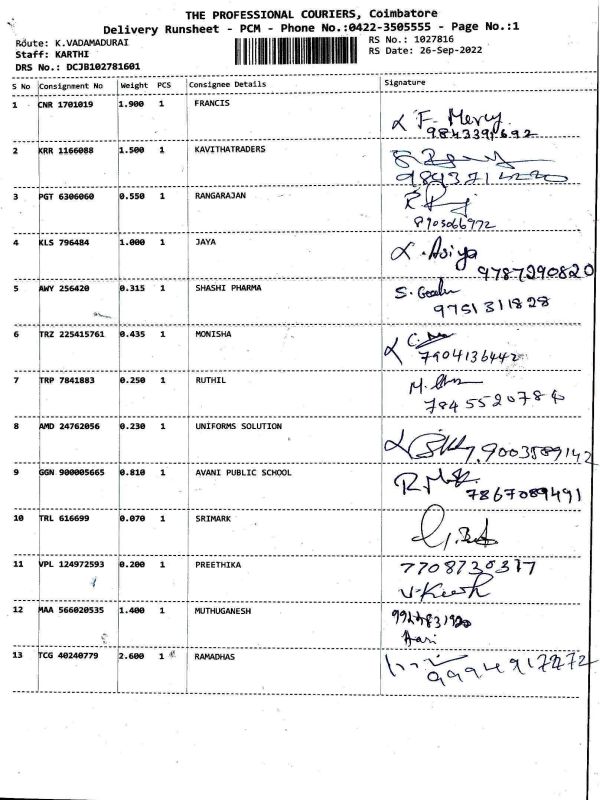 THE PROFESSIONAL COURIERS, Coimbatore
Delivery Runsheet - PCM - Phone No.:0422-3505555 - Page No.:1
Route: K.VADAMADURAI
RS No.: 1027816
Staff: KARTHI
RS Date: 26-Sep-2022
DRS No.: DCJB102781601
S No Consignment No Weight PCS Consignee Details Signature
1 CNR 1701019 1.900 1 FRANCIS
F. Mercy
2 KRR 1166088 1.500 1 KAVITHATRADERS
3 PGT 6306060 0.550 1 RANGARAJAN
4 KLS 796484 1.000 1 JAYA
L. Asiya
9787290820
5 AWY 256420 0.315 1 SHASHI PHARMA
9751311828
6 TRZ 225415761 0.435 1 MONISHA
7904136442
7 TRP 7841883 0.250 1 RUTHIL
8 AMD 24762056 0.230 1 UNIFORMS SOLUTION
9003589142
9 GGN 900005665 0.810 1 AVANI PUBLIC SCHOOL
7867089491
10 TRL 616699 0.070 1 SRIMARK
11 VPL 124972593 0.200 1 PREETHIKA
12 MAA 566020535 1.400 1 MUTHUGANESH
Hari
13 TCG 40240779 2.600 1 RAMADHAS